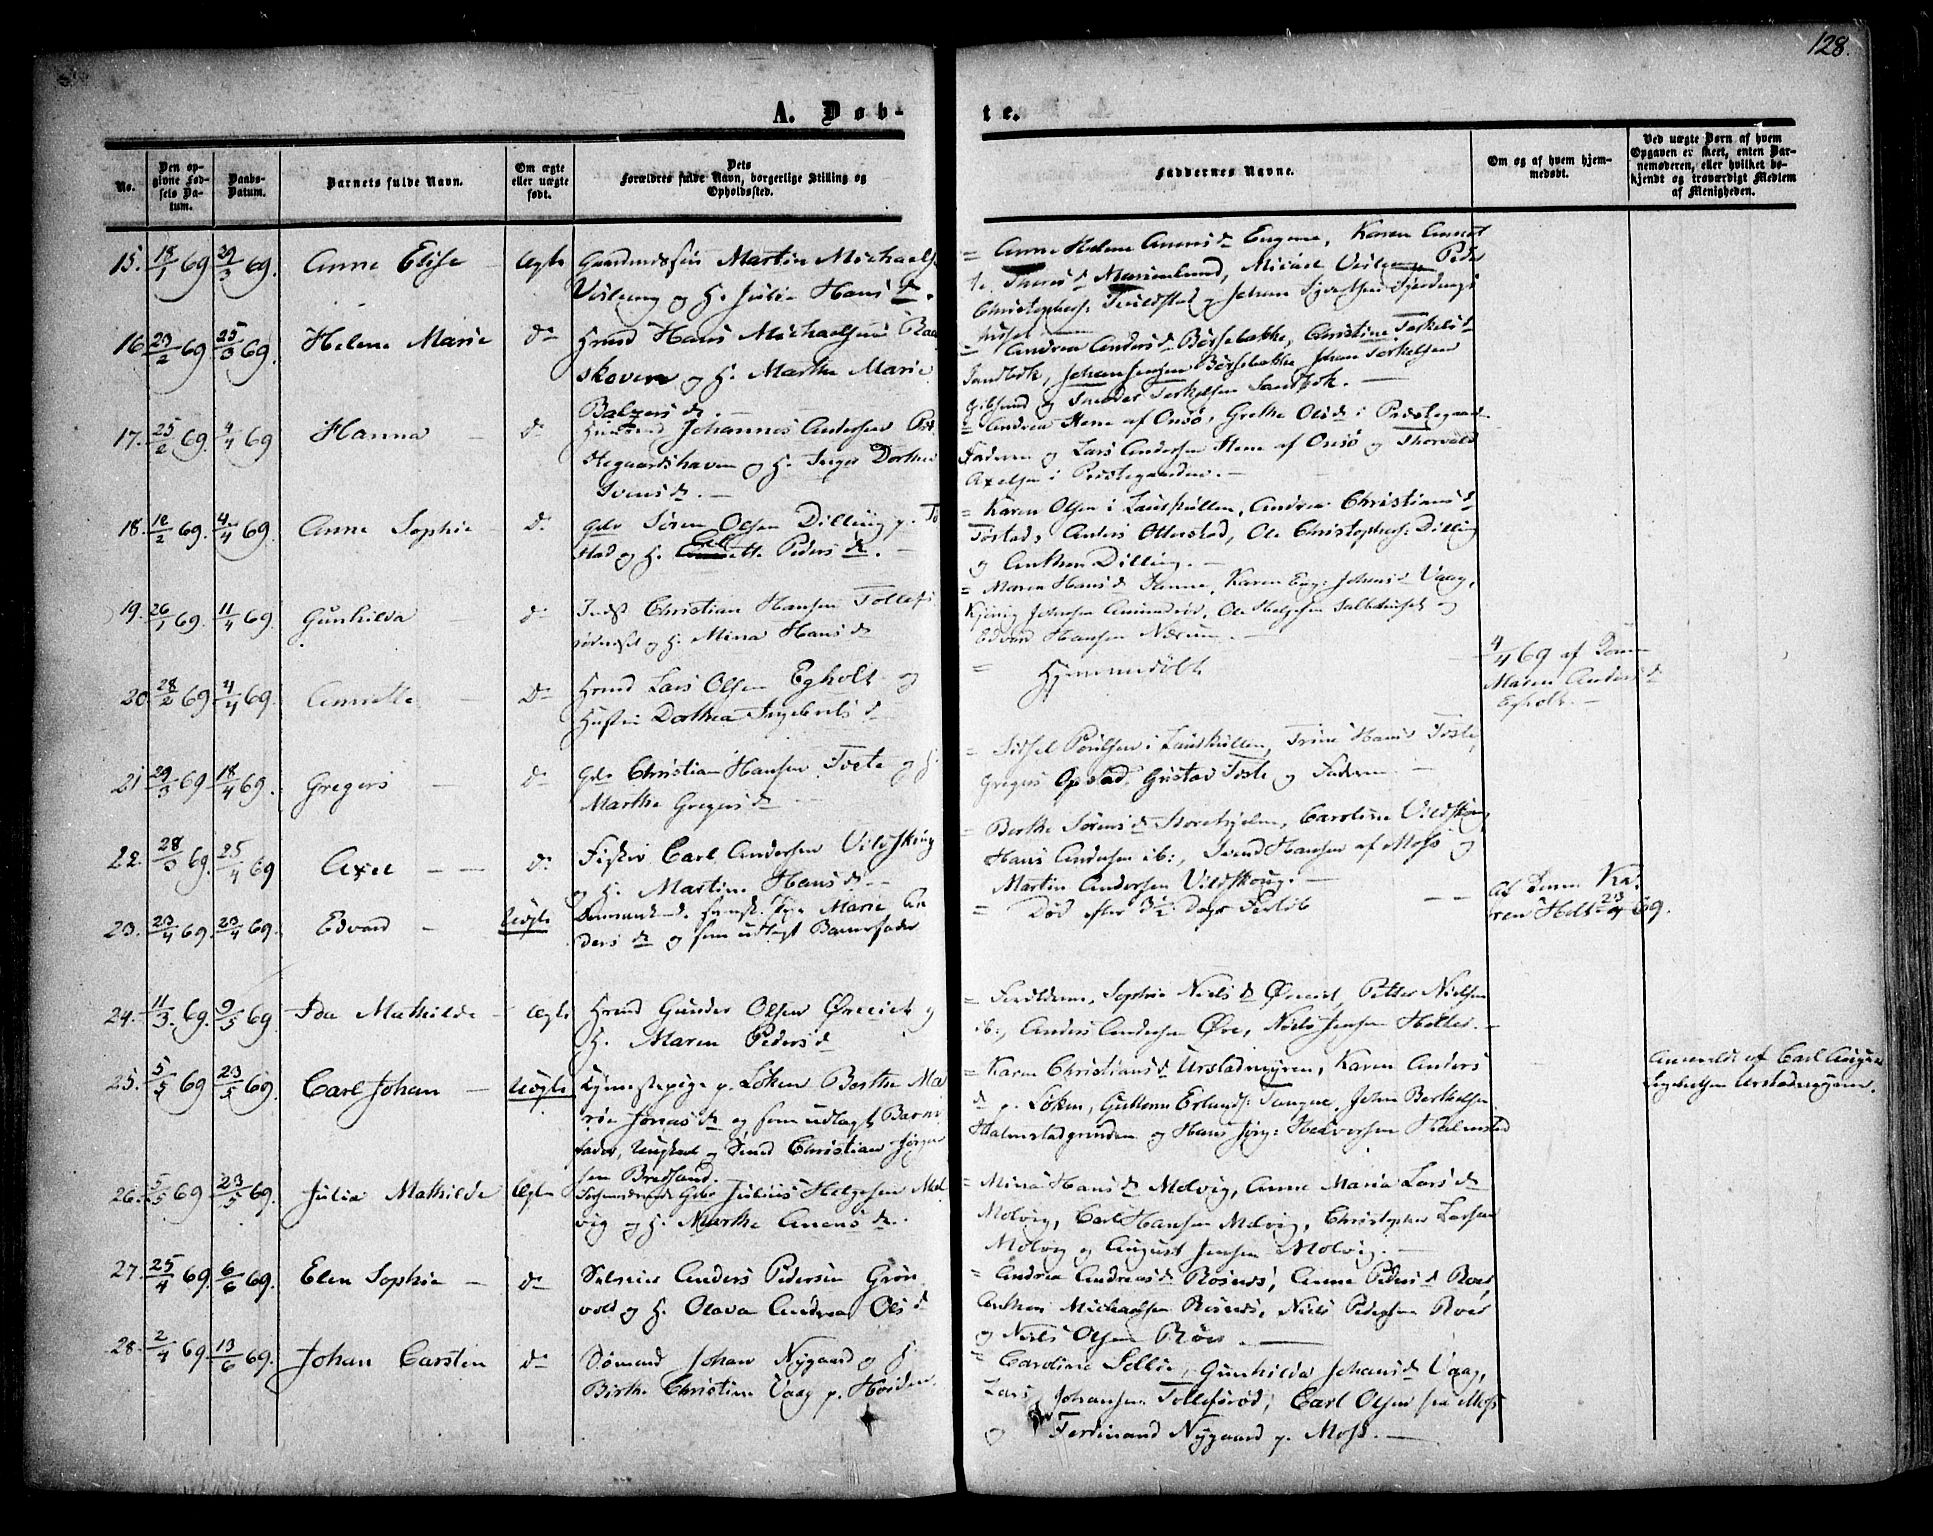 128.
A. Døb-
te.
No.
Den op-
givne Fød-
sels Da-
tum.
Daabs-
Datum.
Barnets fulde Navn.
Om ægte
eller uægte
født.
Dets
Forældres fulde Navn, borgerlige Stilling og
Opholdssted.
Faddernes Navne.
Om og af hvem hjem-
medøbt.
Ved uægte Børn af hvem
Opgaven er skeet, enten Bar-
nemoderen, eller hvilket be-
kjendt og troværdigt Medlem
af Menigheden.
15. 18/1 69 29/3 69. Anne Elise Ægte Martin Michaels
og H. Julia Hans d.
= Anne Helene d Eugene, Karen Annet
te d Marienlund, Peder
Christophers: og Johan
16. 23/2 69 25/3 69. Helene Marie do Hmd Hans Michaelsen
skoven og H. Marthe Marie
Balzers d. —
= Andrea Anders d Börsebakke, Christine Torkels d
Sandbök, Johan Jensen Börsebakke Johan Torkelsen
og Torkelsen Sandbök. —
17. 25/2 69. 4/4 69 Hanna — do Johannes Andersen
stegaardshaven og H. Inger Dorthea
Svens d. —
= Andrea Hene af Onsö, Grethe Ols d i Præstegaard
Faderen og Lars Andersen Hene af Onsö og Thorvald
Axelsen i Præstegaarden. —
18. 12/2 69. 4/4 69. Anne Sophie do Gdr Sören Olsen Dilling p. Tö
stad og H. Peders d. —
= Karen Olsen i Lauskullen, Andrea Christians d
Töstad, Anders Otterstad, Ole Christophers: Dilling
og Anthon Dilling. —
19. 26/1 69. 11/4 69. Gunhilda do Indst Christian Hansen Tollefs
og H. Mina Hans d
= Maren Hans d Karen Eng: Johans d Vaag,
Johansen Ole Helgesen og
Edvard Hansen Nærum. —
20. 28/2 69. 4/4 69. Annette — do Hmd Lars Olsen Egholt og
Hustru Dorthea Ingebrets d
= Hjemmedöbt
4/4 69 af
Maren Anders d
Egholt. —
21. 29/3 69 18/4 69. Gregers — do Gdr Christian Hansen Toste og H.
Marthe Gregers d —
= Sidsel Poulsen i Lauskullen, Trine Hans Toste,
Gregers Opstad, Gustav Toste og Faderen. —
22. 28/3 69. 25/4 69 Axel — — do Fisker Carl Andersen Vildskoug
og H. Martine Hans d. —
= Berthe Sörens d Storehjelm, Caroline Vildskoug
Hans Andersen ib:, Svend Hansen af Moss og
Martin Andersen Vildskoug. —
23. 23/4 69. 23/4 69. Edvard — Uægte Marie An
ders d og som udlagt Barnefader
= Död efter 3 1/2 Dags Forlöb — —
Ka
ren Holt 23/4 69.
24. 11/3 69. 9/5 69. Ida Mathilde — Ægte Hmd Gunder Olsen Öreeiet og
H. Maren Peders d
= Forældrene, Sophie Niels d Öreeiet, Petter Nielsen
ib:, Anders Andersen Öre, Niels Jensen —
25. 5/5 69 23/5 69. Carl Johan — Uægte p. Löken Berthe Ma
rie Jonas d og som udlagt Barne
fader, Ungkarl og Smed Christian Jörgen
sen Bredsand.
= Karen Christians d Urstadmyren, Karen Anders
d p. Löken, Gullena Erlands: Tangen, John Berthelsen
Halmstadgrinden og Hans Jörg: Halvorsen Halmstad
Anmeldt af Carl August
Ingebretsen Urstadmyren.
26. 5/5 69 23/5 69. Julia Mathilde Ægte Julius Helgesen Mol
vig og H. Marthe d.
= Mina Hans d Molvig, Anne Maria Lars d
Molvig, Carl Hansen Molvig, Christopher Larsen
Molvig og August Jensen Molvig. —
27. 25/4 69. 6/6 69. Elen Sophie — do Anders Pedersen Grön
vold og H. Olava Andrea Ols d
= Andrea Andreas d Rosnes, Anne Peders d Roer
Anthon Michaelsen Rosnes, Niels Pedersen Roer
og Niels Olsen Röer. —
28. 2/4 69 13/6 69. Johan Carsten do Sömand Johan Nygaard og H.
Birthe Christine Vaag p. Hoiden.
= Caroline Gunhilda Johans d Vaag,
Lars Johansen Tollefsröd, Carl Olsen fra Moss
og Ferdinand Nygaard p. Moss. —